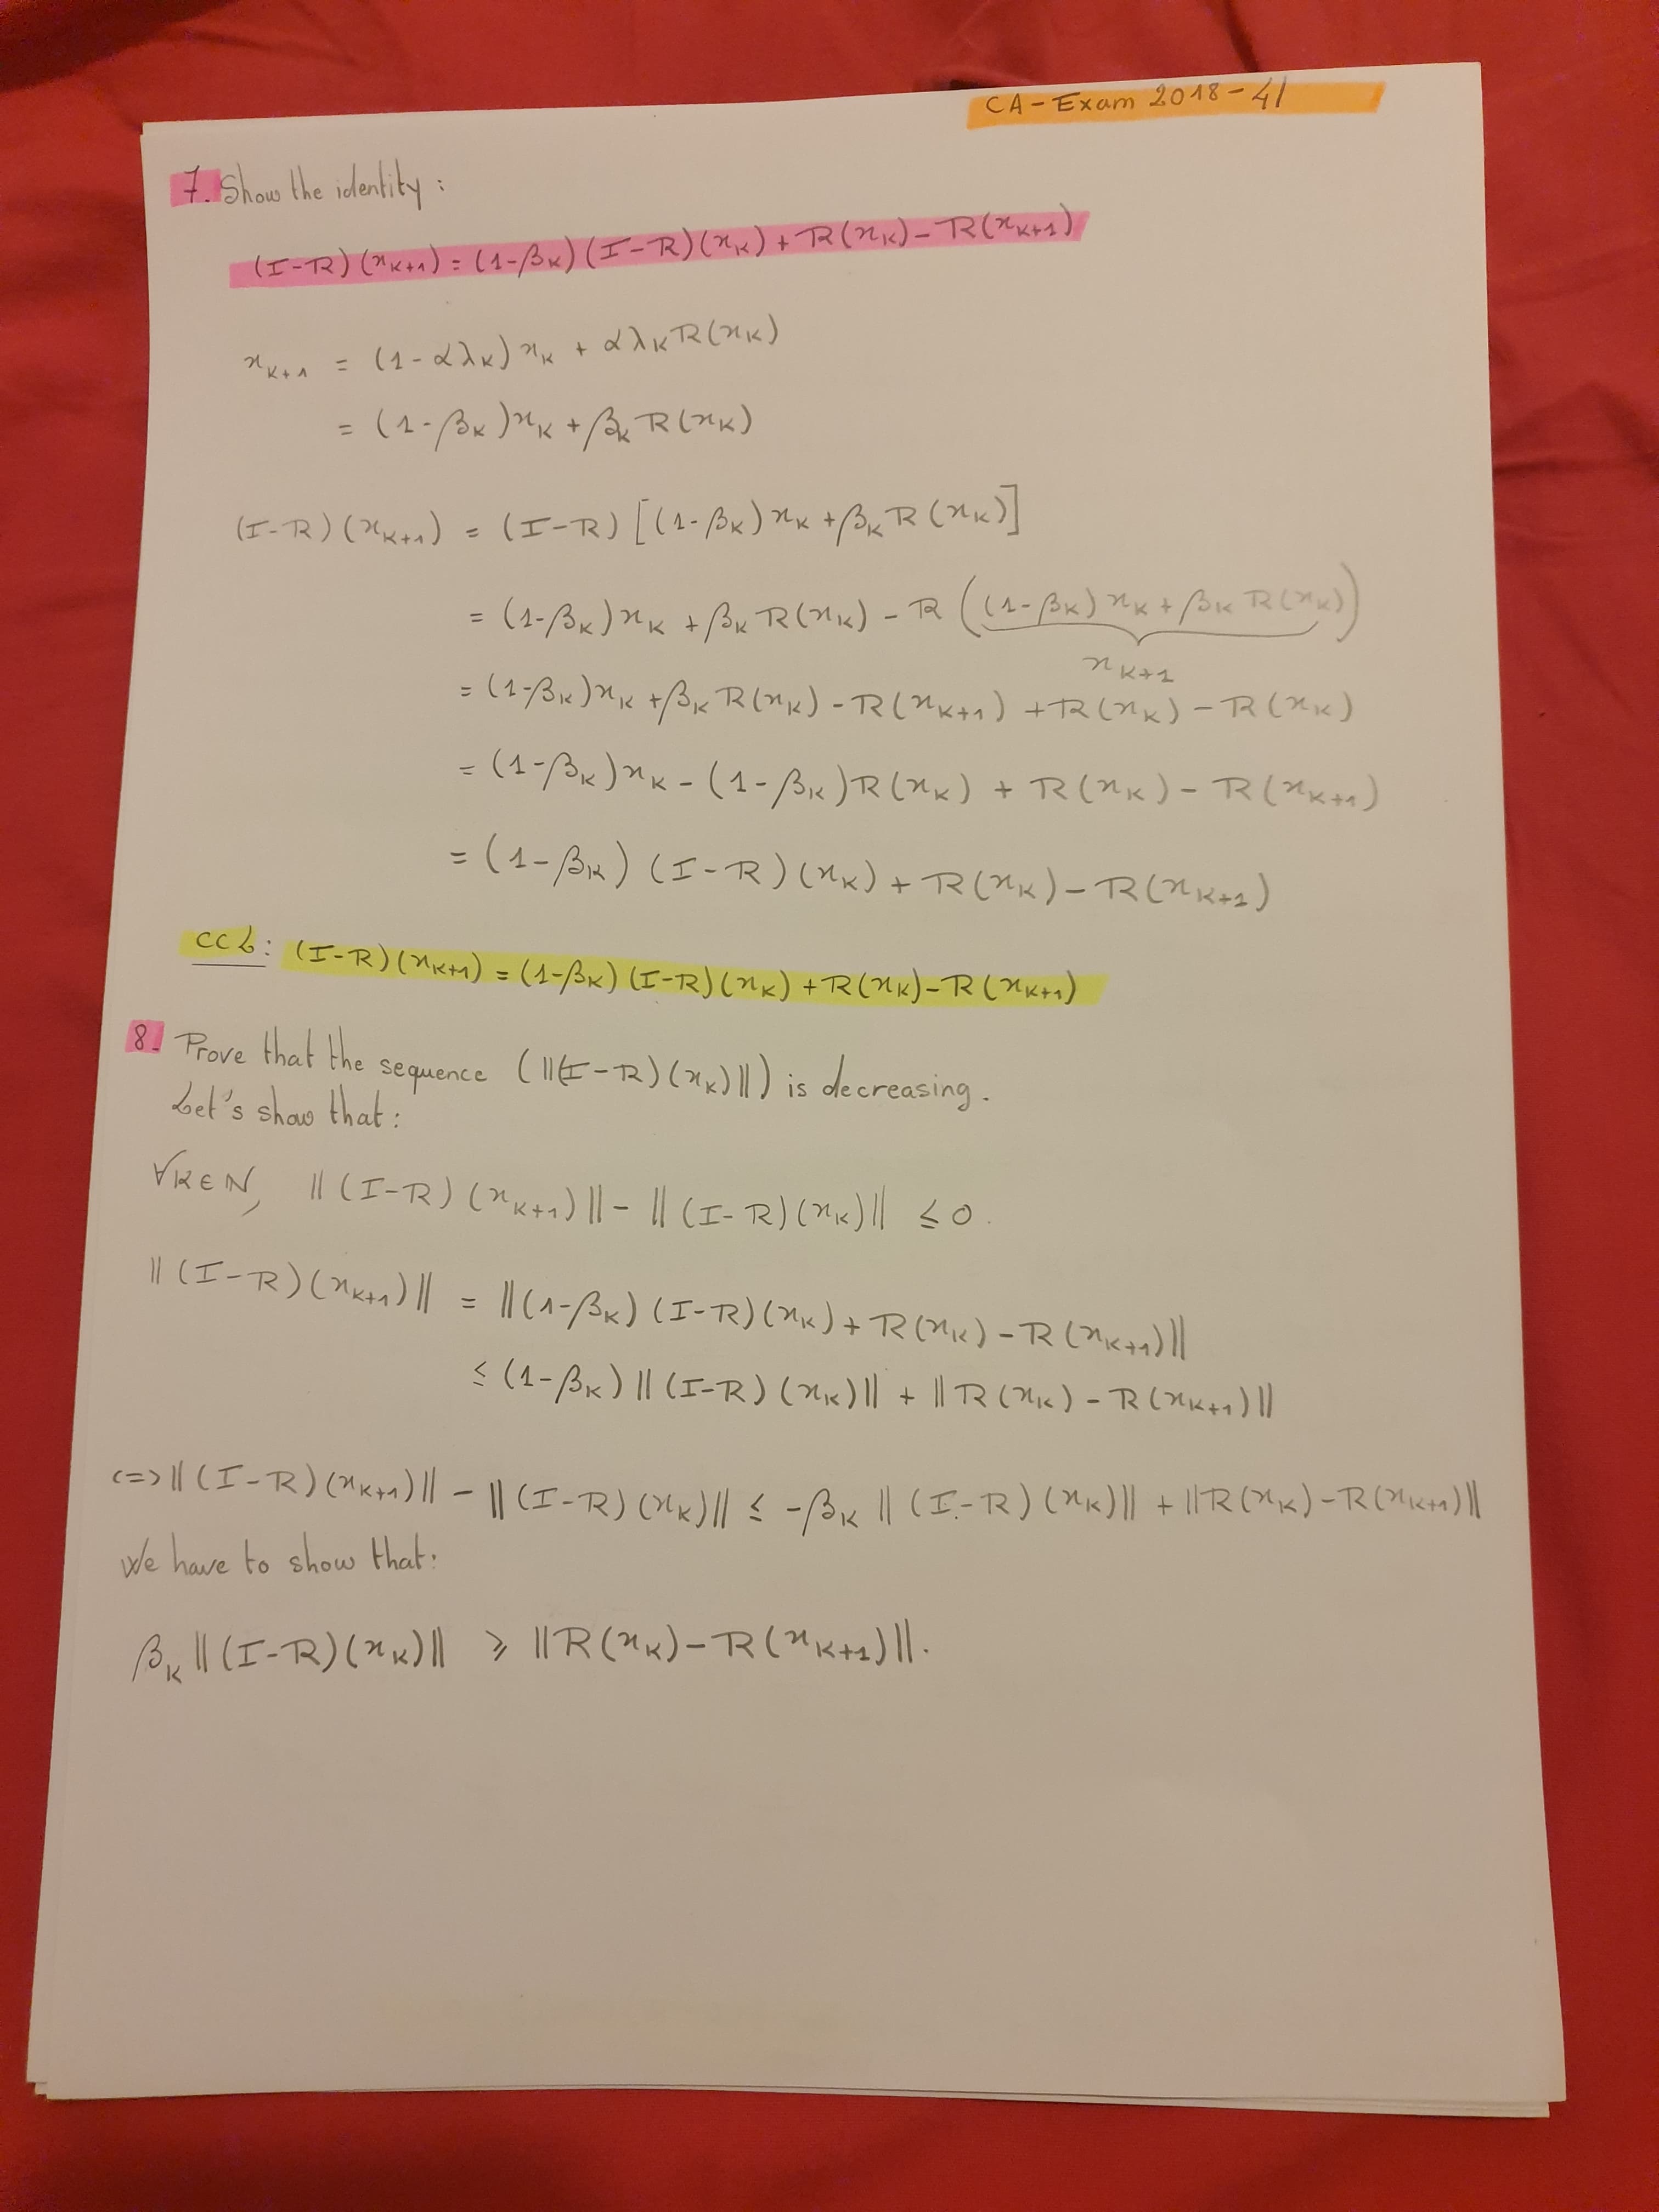 CA-Exam 2018-4/
7. Show the identity :
(I-R)(x_{K+1}) = (1-β_K)(I-R)(x_K) + R(x_K) - R(x_{K+1})
x_{K+1} = (1-αλ_K) x_K + αλ_K R(x_K)
= (1-β_K)x_K + β_K R(x_K)
(I-R)(x_{K+1}) = (I-R) [(1-β_K)x_K + β_K R(x_K)]
= (1-β_K)x_K + β_K R(x_K) - R ((1-β_K)x_K + β_K R(x_K))
x_{K+1}
= (1-β_K)x_K + β_K R(x_K) - R(x_{K+1}) + R(x_K) - R(x_K)
= (1-β_K)x_K - (1-β_K)R(x_K) + R(x_K) - R(x_{K+1})
= (1-β_K) (I-R)(x_K) + R(x_K) - R(x_{K+1})
CCL: (I-R)(x_{K+1}) = (1-β_K)(I-R)(x_K) + R(x_K) - R(x_{K+1})
8. Prove that the sequence (||(I-R)(x_K)||) is decreasing.
Let's show that :
∀K∈N, ||(I-R)(x_{K+1})|| - ||(I-R)(x_K)|| ≤ 0.
||(I-R)(x_{K+1})|| = ||(1-β_K)(I-R)(x_K) + R(x_K) - R(x_{K+1})||
≤ (1-β_K) ||(I-R)(x_K)|| + ||R(x_K) - R(x_{K+1})||
<=> ||(I-R)(x_{K+1})|| - ||(I-R)(x_K)|| ≤ -β_K ||(I-R)(x_K)|| + ||R(x_K) - R(x_{K+1})||
We have to show that:
β_K ||(I-R)(x_K)|| ≥ ||R(x_K) - R(x_{K+1})||.